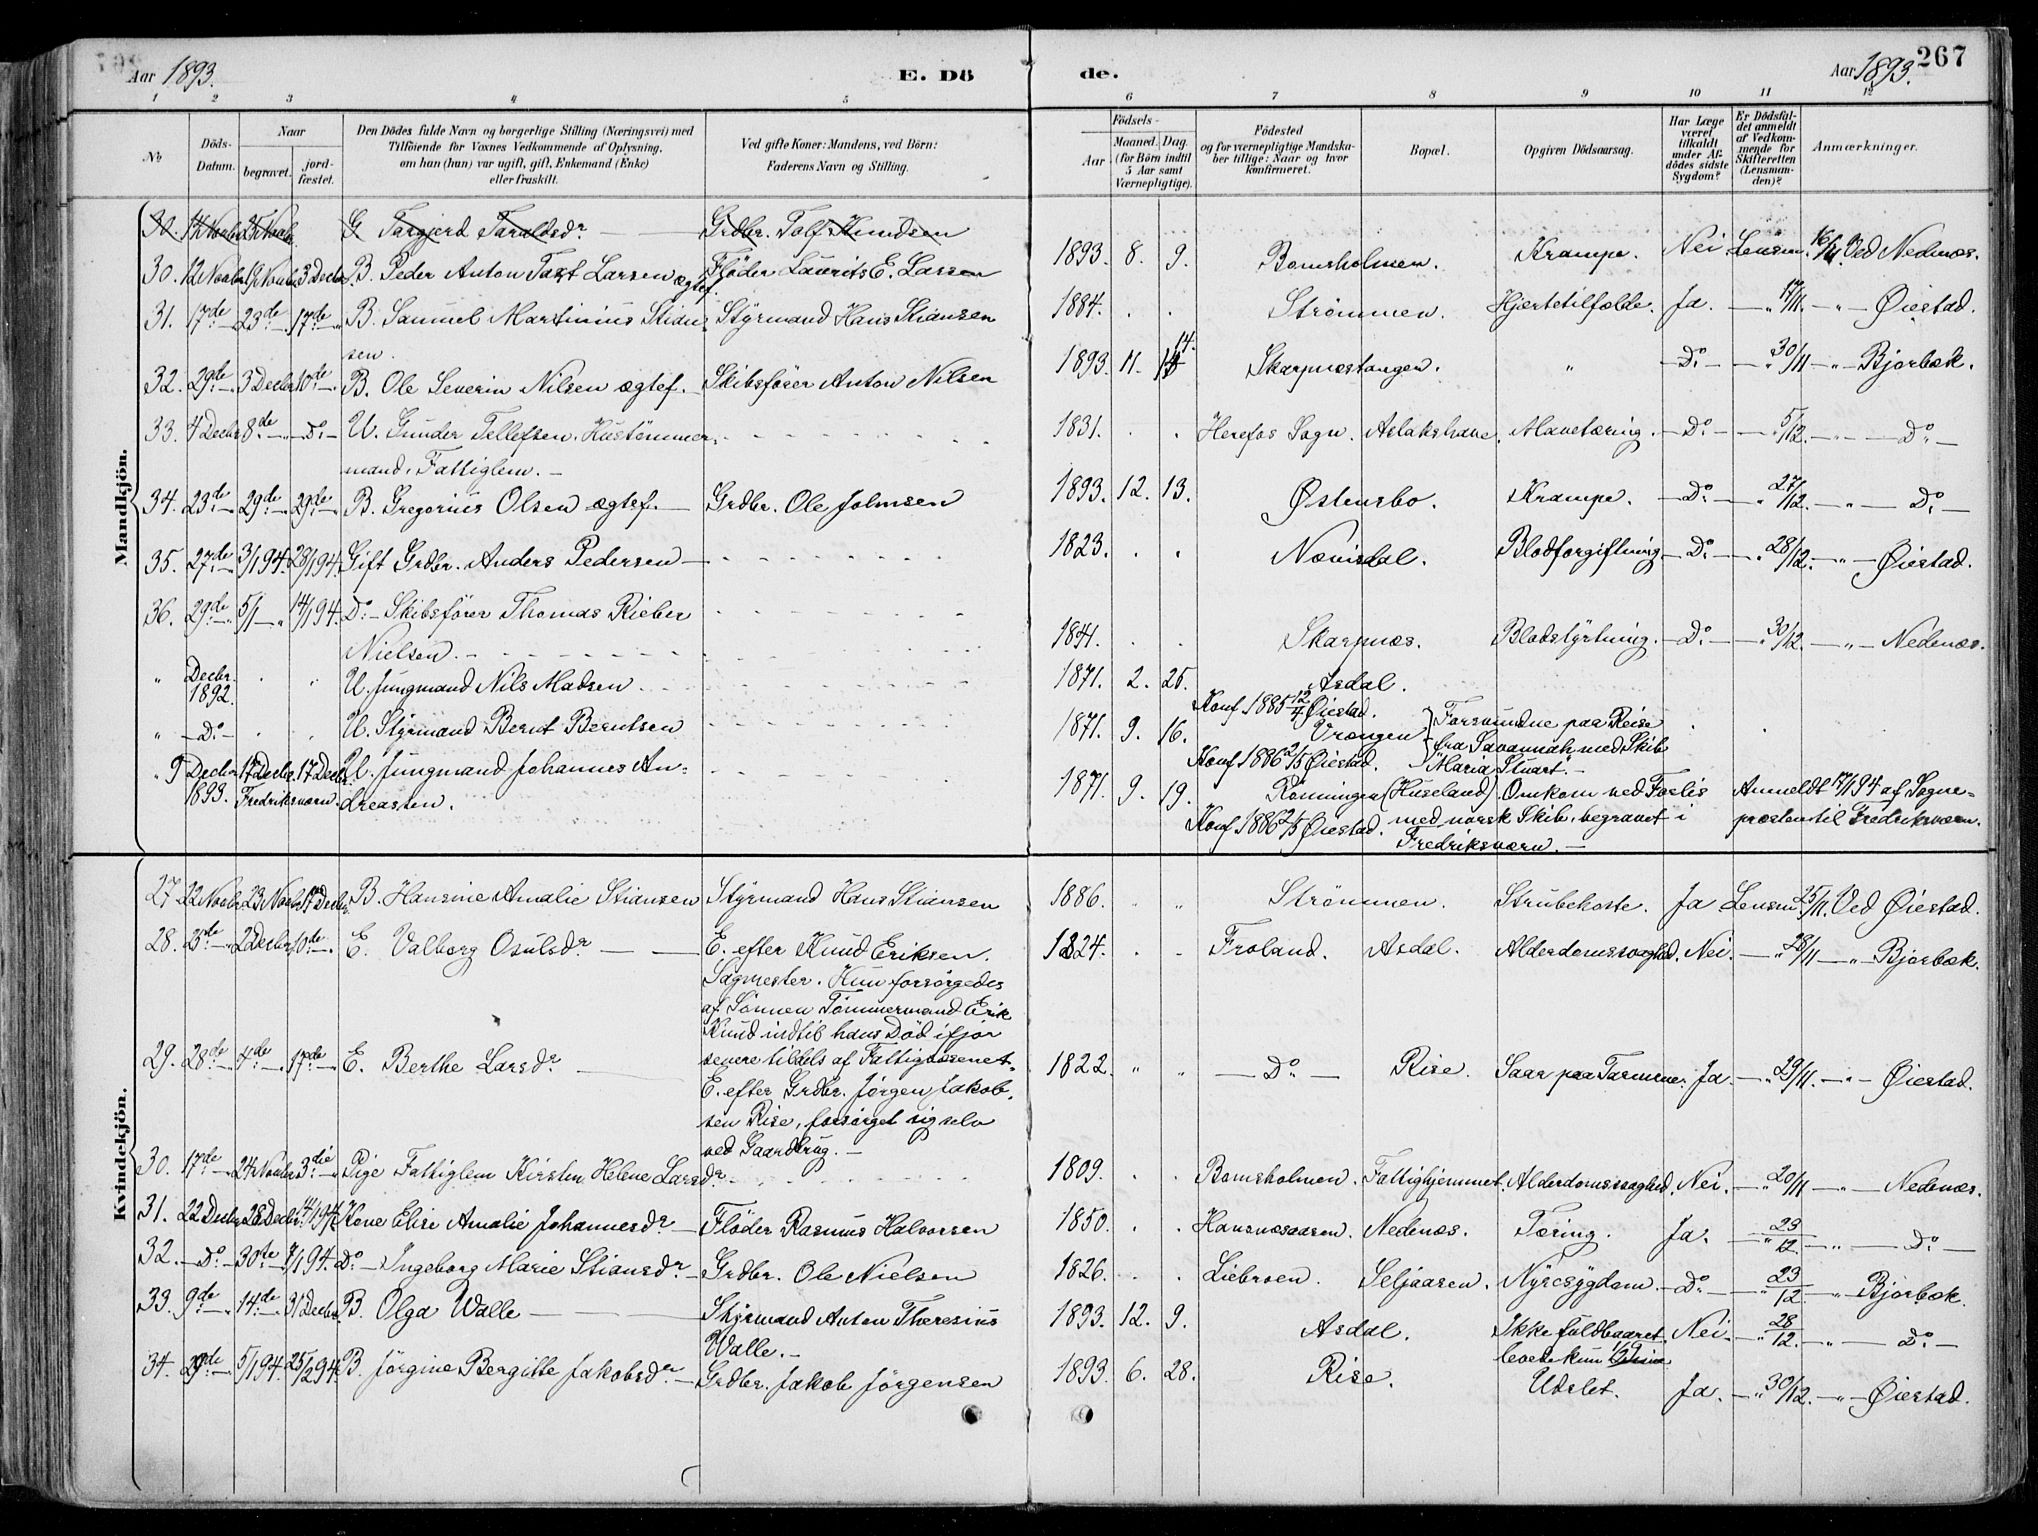 267
Aar 1893. E. Dö de. Aar 1893.
1 2 3 4 5 6 7 8 9 10 11 12
No
Döds-Datum.
Naar
begravet. jordfæstet.
Den Dödes fulde Navn og borgerlige Stilling (Næringsvei) med
Tilföiende for Voxnes Vedkommende af Oplysning,
om han (hun) var ugift, gift, Enkemand (Enke)
eller fraskilt.
Ved gifte Koner: Mandens, ved Börn:
Faderens Navn og Stilling.
Födsels-
Aar Maaned. Dag.
(for Börn indtil
5 Aar samt
Værnepligtige).
Födested
og for værnepligtige Mandskaber tillige: Naar og hvor
konfirmeret.
Bopæl.
Opgiven Dödsaarsag.
Har Læge
været
tilkaldt
under Afdödes sidste
Sygdom?
Er Dödsfaldet anmeldt
af Vedkommende for
Skifteretten
(Lensmanden)?
Anmærkninger.
Mandkjön.
30. 14 Novbr 25 Novbr. G Targjerd Taraldsdr — Grdbr. Tolf Knudsen
30. 12 Novbr 19 Novbr 3 Decbr. B. Peder Anton Taxt Larsen ægtef. Fløder Laurits E. Larsen 1893. 8. 9. Bomsholmen. Krampe. Nei Lensm. 16/11. Ved Nedenæs.
31. 17de 23de 17de B. Samuel Martinius Stian- Styrmand Hans Stiansen 1884. Strömmen. Hjertetilfælde. Ja. — " 17/11. — " — Øiestad.
sen.
32. 29de 3 Decbr 10de B. Ole Severin Nilsen ægtef. Skibsfører Anton Nilsen 1893. 11. 14. Skarpnæstangen. " Do — " 30/11 — " — Bjorbæk.
33. 4 Decbr 8de Do U. Gunder Tellefsen. Hustömmer- 1831. Herefos Sogn. Aslakshave. Mavetæring. Do — 5/12. — " — Do —
mand. Fattiglem. —
34. 23de 29de 29de B. Gregorius Olsen ægtef. — Grdbr. Ole Johnsen 1893. 12. 13. Østensbo. Krampe. Do — " 27/12. — " — Do —
35. 27de 3/1 94. 28/1 94. Gift Grdbr. Anders Pedersen — 1823. Nævisdal. Blodforgiftning Do — " 28/12. — " — Øiestad.
36. 29de 5/1 — 14/1 94. Do — Skibsfører Thomas Rieber 1841. Skarpnæs. Blodstyrtning. Do — " 30/12. — " — Nedenæs.
Nielsen. —
" Decbr. 1892. U. Jungmand Nils Madsen. 1871. 2. 25. Asdal.
Konf. 1885 12/4 Øiestad.
" Do U. Styrmand Bernt Berntsen 1871. 9. 16. Vrængen Forsvundne paa Reise
fra Savannah med Skib
Konf 1886 2/5 Øiestad. "Maria Stuart". —
" 9 Decbr 1893. 17 Decbr. 17 Decbr. U. Jungmand Johannes An- 1871. 9. 19. Rönningen (Huseland). Omkom ved Forlis Anmeldt 17/1 94 af Sogne-
Fredriksværn. dreasten. Konf 1886 2/5 Øiestad. med norsk Skib, begravet i præsten til Fredriksværn.
Fredriksværn. —
Kvindekjön.
27 22 Novbr. 23 Novbr 17 Decbr. B. Hansine Amalie Stiansen Styrmand Hans Stiansen 1886. " " Strömmen. Strubehoste. Ja Lensm 25/11. Ved Øiestad.
28. 25de 2 Decbr 10de E. Valborg Osulsdr — E. efter Knud Eriksen. 1824. Froland. Asdal. Alderdomssvaghed. Nei. — " 28/11 — " Bjorbæk.
Sagmester. Hun forsörgedes
af Sönnen Tömmermand Erik
Knud indtil hans Död ifjor
senere tildels af Fattigvæsenet.
29. 28de 4de 17de E. Berthe Larsdr — 1822. " " — Do — Rise. Saar paa Tarmene. Ja — " 29/11. — " — Øiestad.
E. efter Grdbr. Jörgen Jakob-
sen Rise, forsörget sig selv
ved Gaardbrug. —
30. 17de 24 Novbr 3die Pige Fattiglem Kirsten Helene Larsdr 1809. Bomsholmen. Fattighjemmet. Alderdomssvaghed. Nei. — " 20/11 — " — Nedenæs.
31. 22 Decbr 28 Decbr. 14/1 94. Kone Elise Amalie Johannesdr — Fløder Rasmus Halvorsen 1850. Hansnæsaasen. Nedenæs. Tæring. Ja. — " 23/12. — " — Do —
32. — Do — 30te 7/1 94. Do — Ingeborg Marie Stiansdr — Grdbr. Ole Nielsen 1826. Liebroen. Seljaasen. Nyresygdom. Do — " 23/12. — " Bjorbæk.
33. 9de 14de 31 Decbr. B. Olga Walle — Styrmand Anton Theresius 1893. 12. 9. Asdal. Ikke fuldbaaret. Nei. — " 28/12. — " — Do —
Walle. — levede kun
34. 29de 5/1 94. 25/2 94. B. Jörgine Bergitte Jakobsdr — Grdbr. Jakob Jörgensen 1893. 6. 28. Rise. Udslet. Ja. — " 30/12. — " — Øiestad.